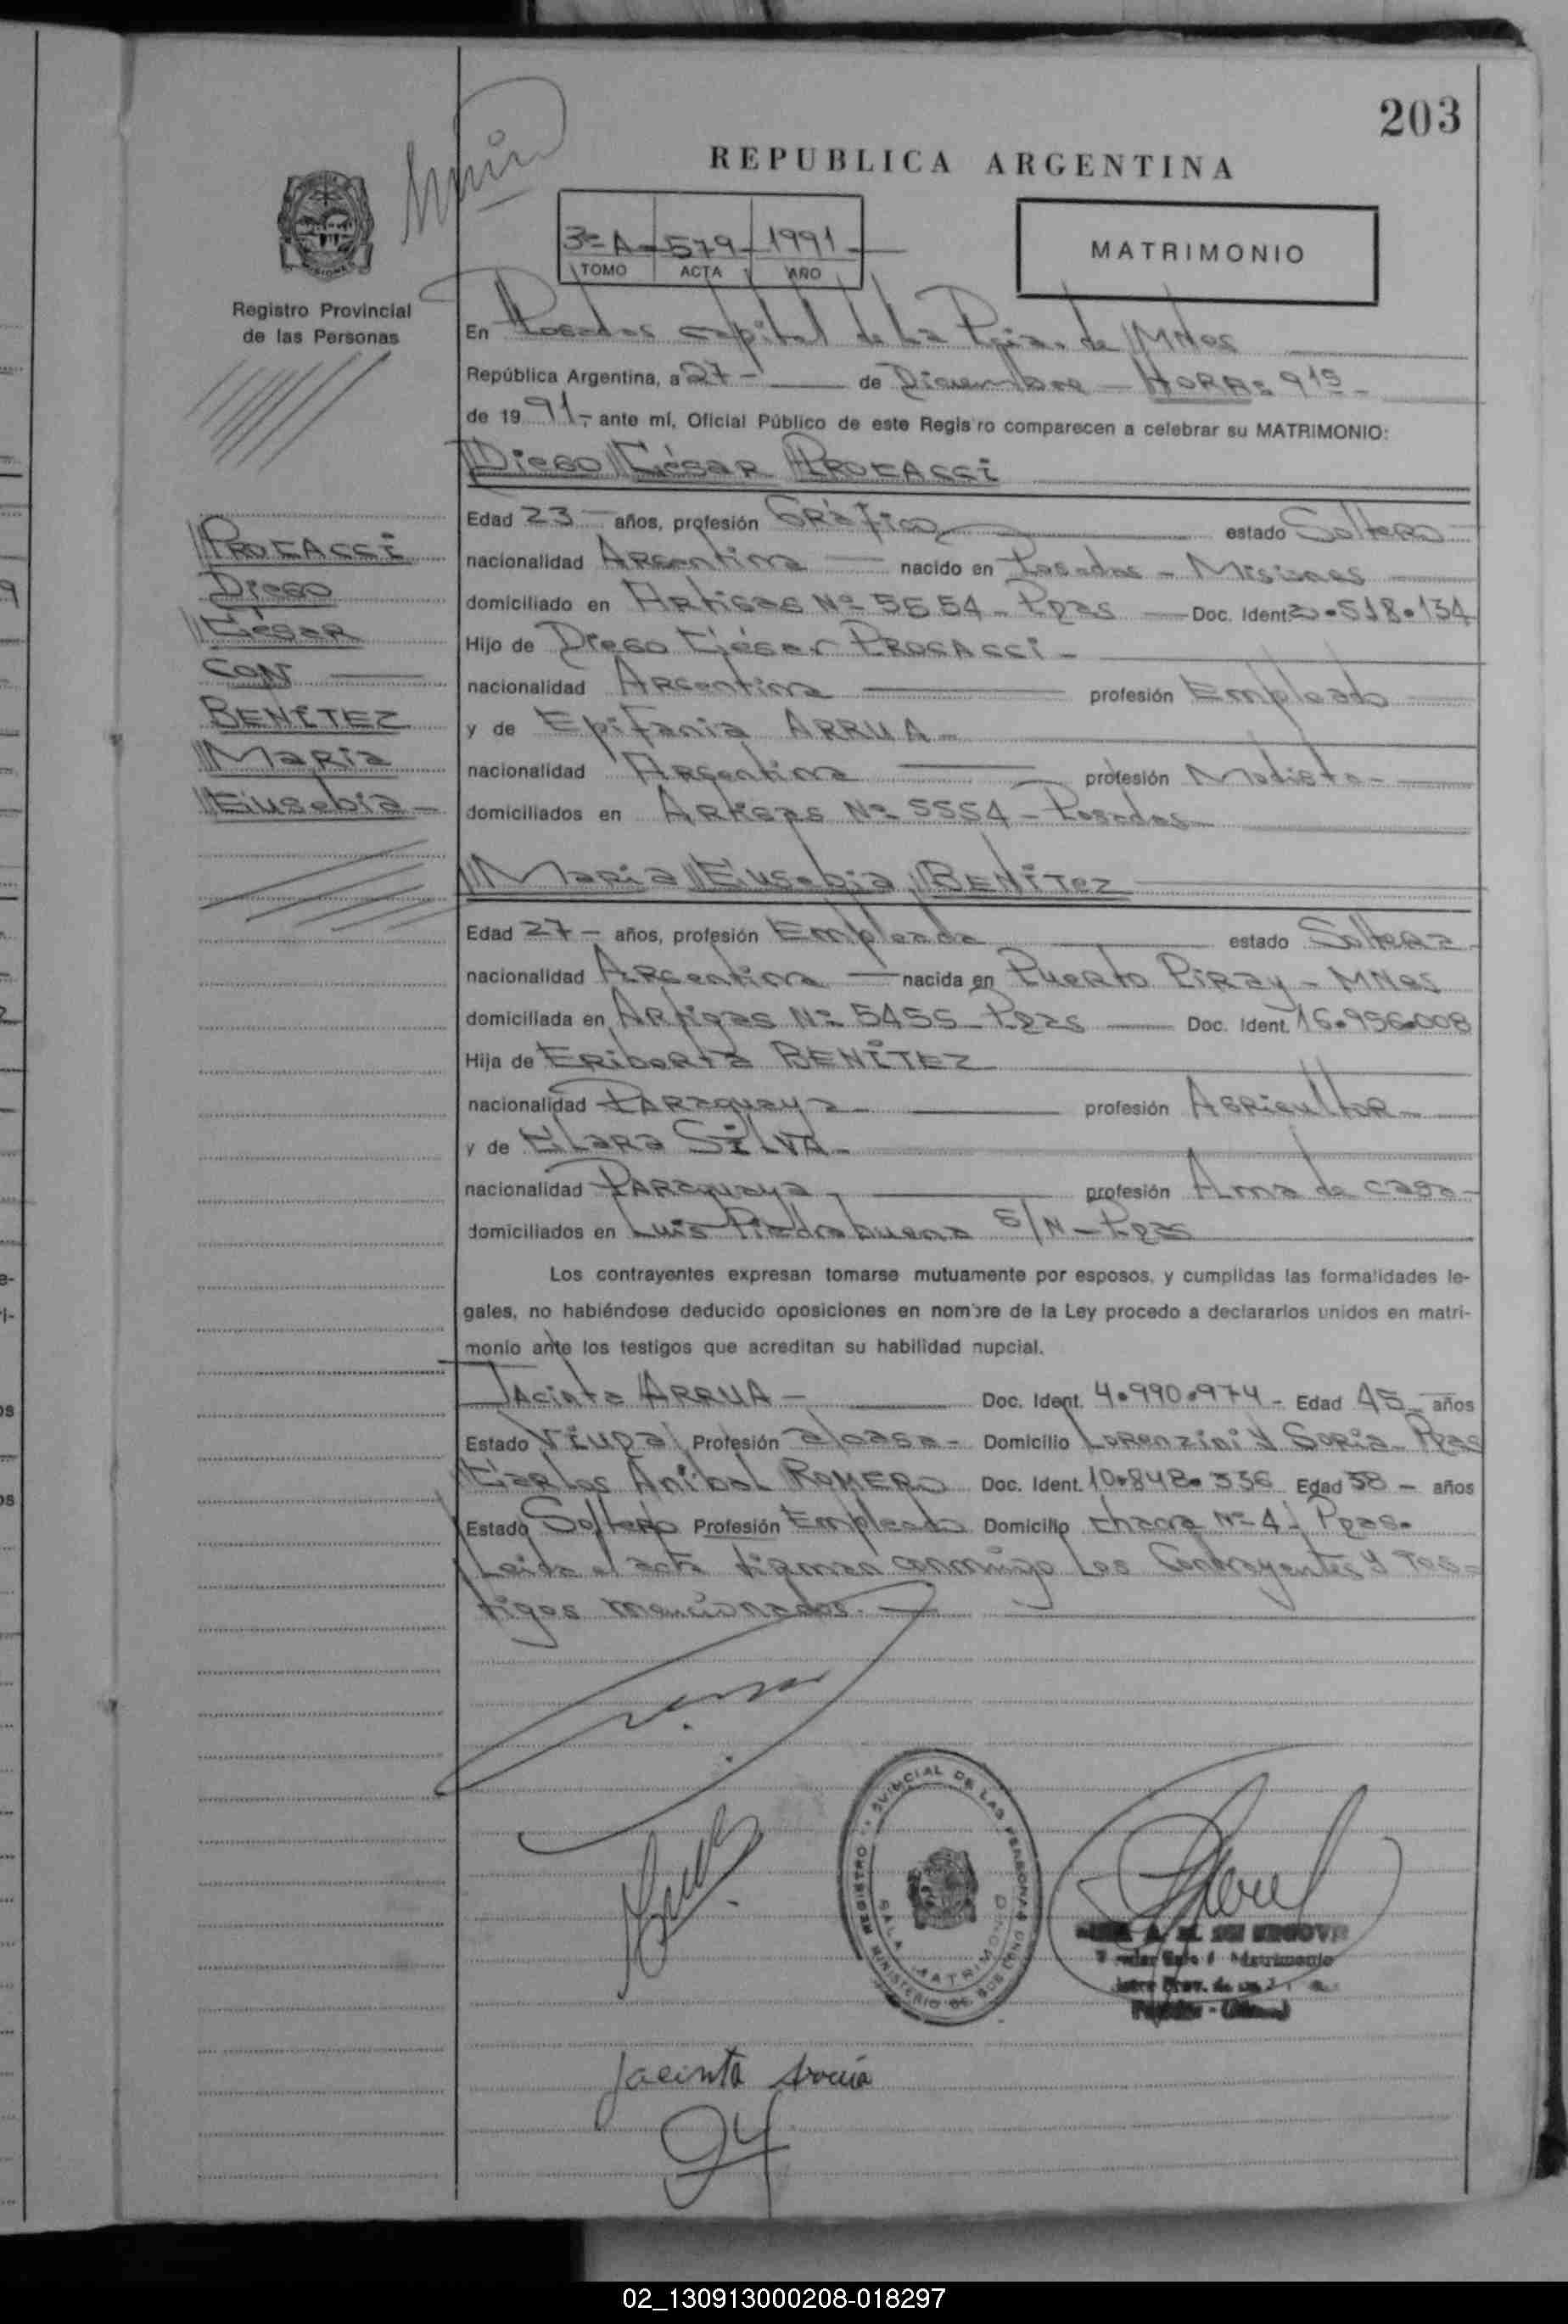 203
REPUBLICA ARGENTINA
3º A - 579 - 1991 -
TOMO ACTA AÑO
MATRIMONIO
Registro Provincial
de las Personas
En Posadas capital de La Pcia. de MNes
República Argentina, a 27 - de Diciembre - HORA: 9 15 -
de 19 91 - ante mí, Oficial Público de este Registro comparecen a celebrar su MATRIMONIO:
Diego César PROCACCI
Edad 23 - años, profesión Gráfico estado Soltero
nacionalidad Argentina nacido en Posadas - Misiones
domiciliado en Artigas Nº 5554 - Pdas Doc. Ident. 20.518.134
Hijo de Diego César PROCACCI -
nacionalidad Argentina profesión Empleado
y de Epifania ARRUA -
nacionalidad Argentina profesión Modista -
domiciliados en Artigas Nº 5554 - Posadas
PROCACCI
Diego
César
CON
BENITEZ
Maria
Eusebia -
Maria Eusebia BENITEZ
Edad 27 - años, profesión Empleada estado Soltera
nacionalidad Argentina nacida en Puerto Piray - MNes
domiciliada en Artigas Nº 5455 - Pdas Doc. Ident. 16.956.008
Hija de Eriberta BENITEZ
nacionalidad Paraguaya profesión Agricultor
y de Clara SILVA -
nacionalidad Paraguaya profesión Ama de casa -
domiciliados en Luis Piedrabuena S/N - Pdas
Los contrayentes expresan tomarse mutuamente por esposos, y cumplidas las formalidades le-
gales, no habiéndose deducido oposiciones en nombre de la Ley procedo a declararlos unidos en matri-
monio ante los testigos que acreditan su habilidad nupcial.
Jacinta ARRUA - Doc. Ident. 4.990.974 - Edad 45 - años
Estado Viuda Profesión a/casa - Domicilio Lorenzini y Soria - Pdas
Carlos Anibal ROMERO Doc. Ident. 10.848.336 Edad 38 - años
Estado Soltero Profesión Empleado Domicilio chacra Nº 4 - Pdas.
Leida el acta firman conmigo Los Contrayentes y Tes-
tigos mencionados.
REGISTRO PROVINCIAL DE LAS PERSONAS
SALA MATRIMONIO
MINISTERIO DE GOBIERNO
Matrimonio
Jacinta Arrua
02_130913000208-018297